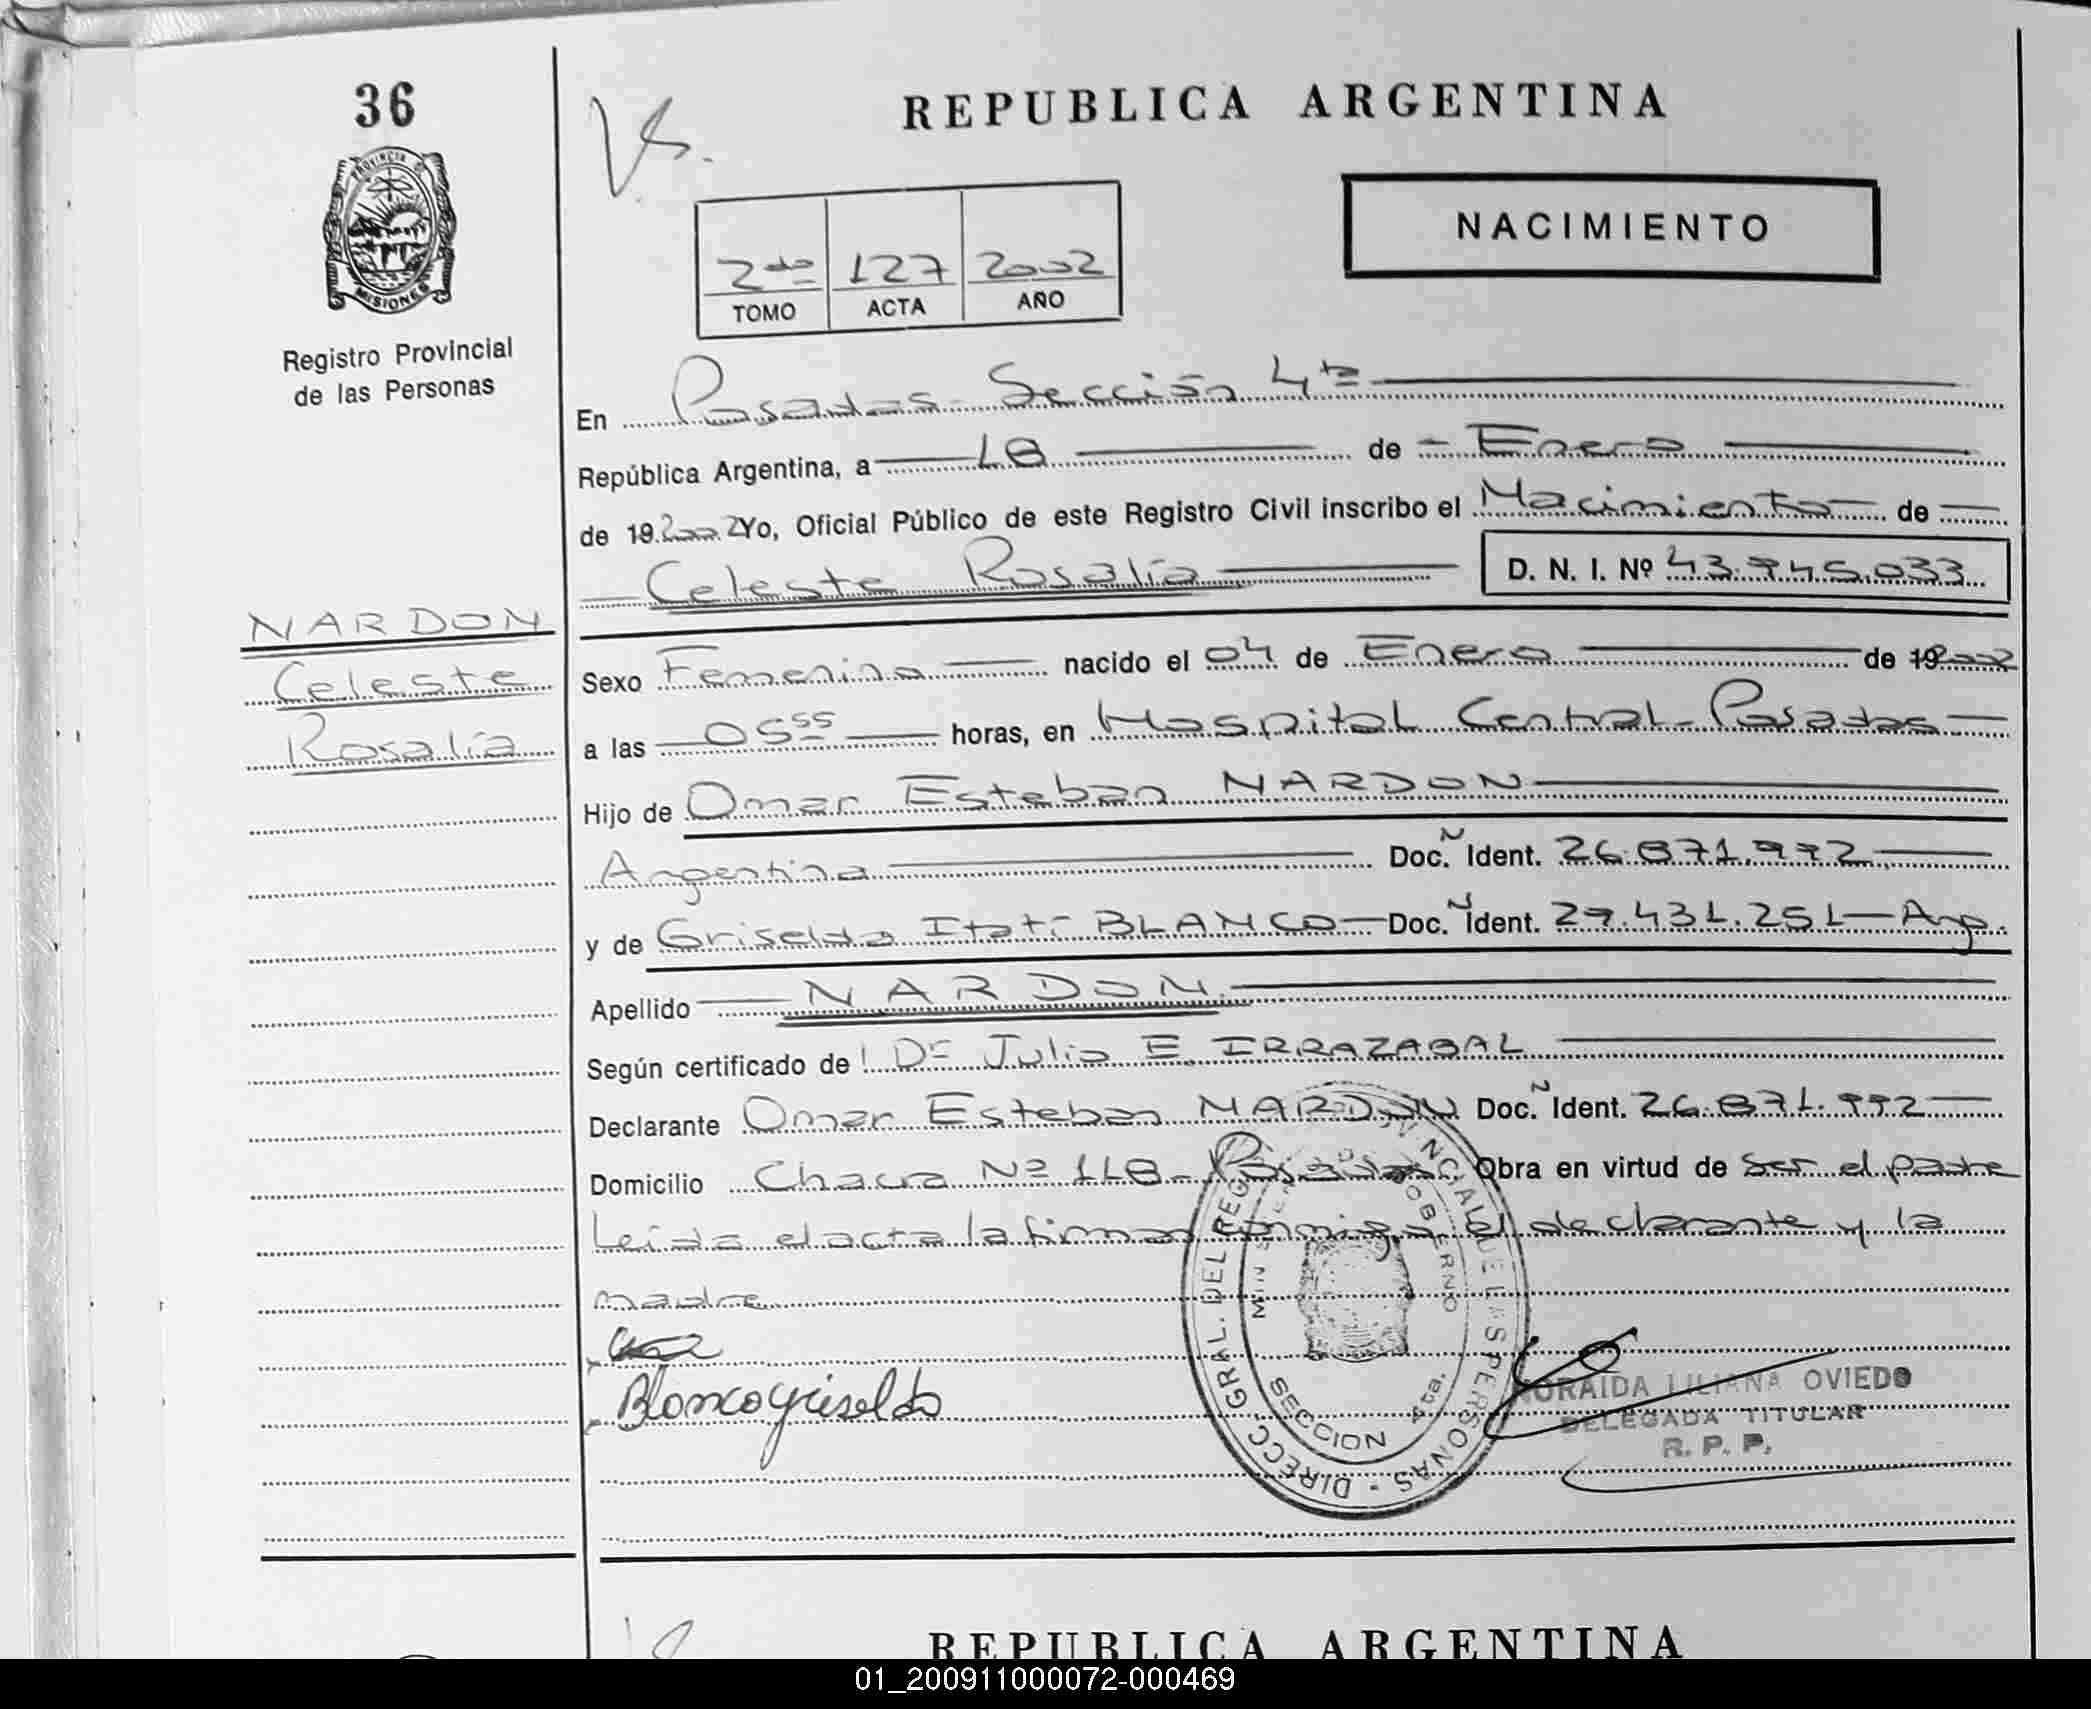 36
REPUBLICA ARGENTINA
Vs.
PROVINCIA DE
MISIONES
NACIMIENTO
2do 127 2002
TOMO ACTA AÑO
Registro Provincial
de las Personas
En Posadas - Sección 4ta
República Argentina, a 18 de Enero
de 19 2002 Yo, Oficial Público de este Registro Civil inscribo el Nacimiento de
Celeste Rosalía D. N. I. Nº 43.945.033
NARDON
Celeste
Rosalía
Sexo Femenino nacido el 04 de Enero de 19 2002
a las 05 55 horas, en Hospital Central - Posadas
Hijo de Omar Esteban NARDON
Argentina Doc. Ñ Ident. 26.871.992
y de Griselda Itatí BLANCO Doc. Ñ Ident. 29.431.251 - Arg.
Apellido NARDON
Según certificado de Dr Julio E. IRRAZABAL
Declarante Omar Esteban NARDON Doc. Ñ Ident. 26.871.992
Domicilio Chacra Nº 118 - Posadas Obra en virtud de ser el padre
Leída el acta la firman conmigo el declarante y la
madre
Blanco Griselda
DIRECC GRAL. DEL REG PROVINCIAL DE LAS PERSONAS
GOBIERNO
SECCION 4ta.
NORAIDA LILIANA OVIEDO
DELEGADA TITULAR
R. P. P.
REPUBLICA ARGENTINA
01_200911000072-000469